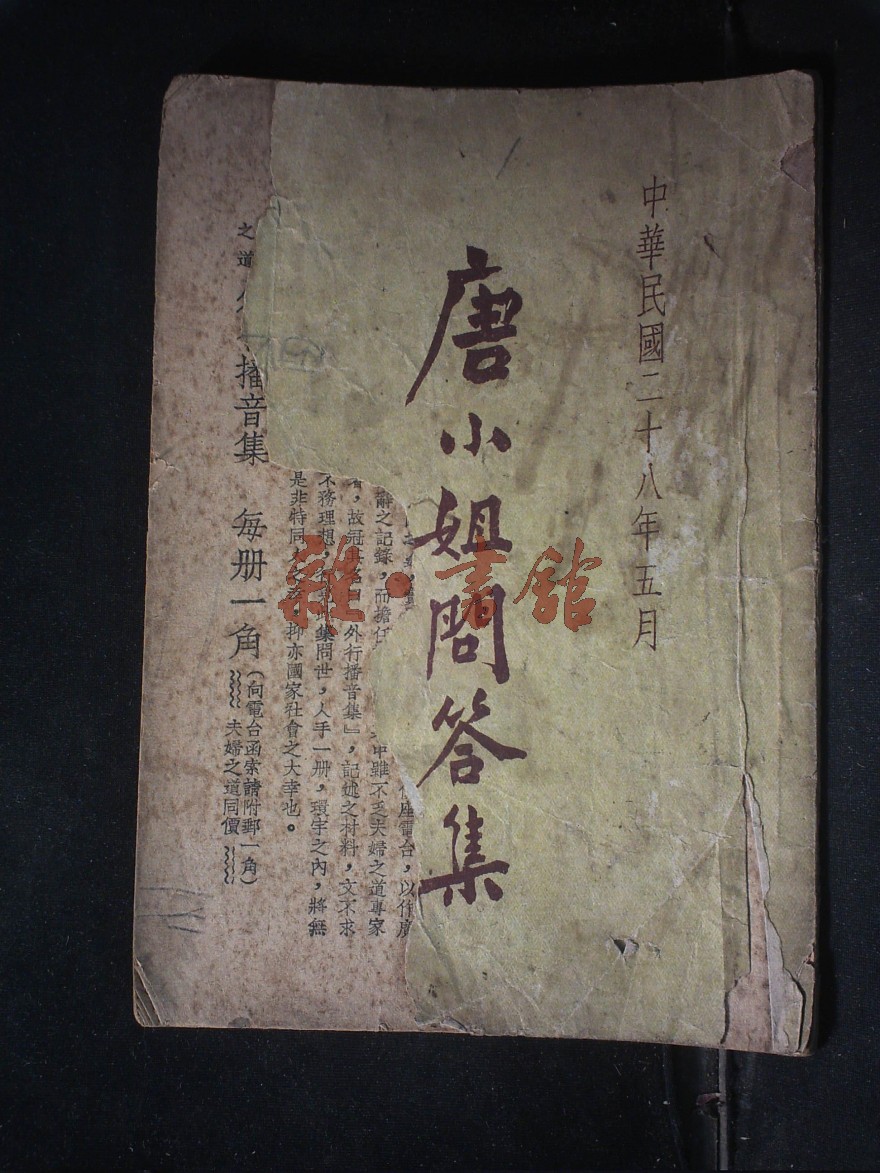 中華民國二十八年五月
唐小姐問答集
雜·書館
座電台，以作廣
辭之記錄，而擔任
中雖不乏夫婦之道專家
故冠其名曰
外行播音集』，記述之材料，文不求
不務理想，
集問世，人手一册，環宇之內，將無
是非特同
抑亦國家社會之大幸也。
之道
播音集 每册一角（向電台函索請附郵一角）
夫婦之道同價